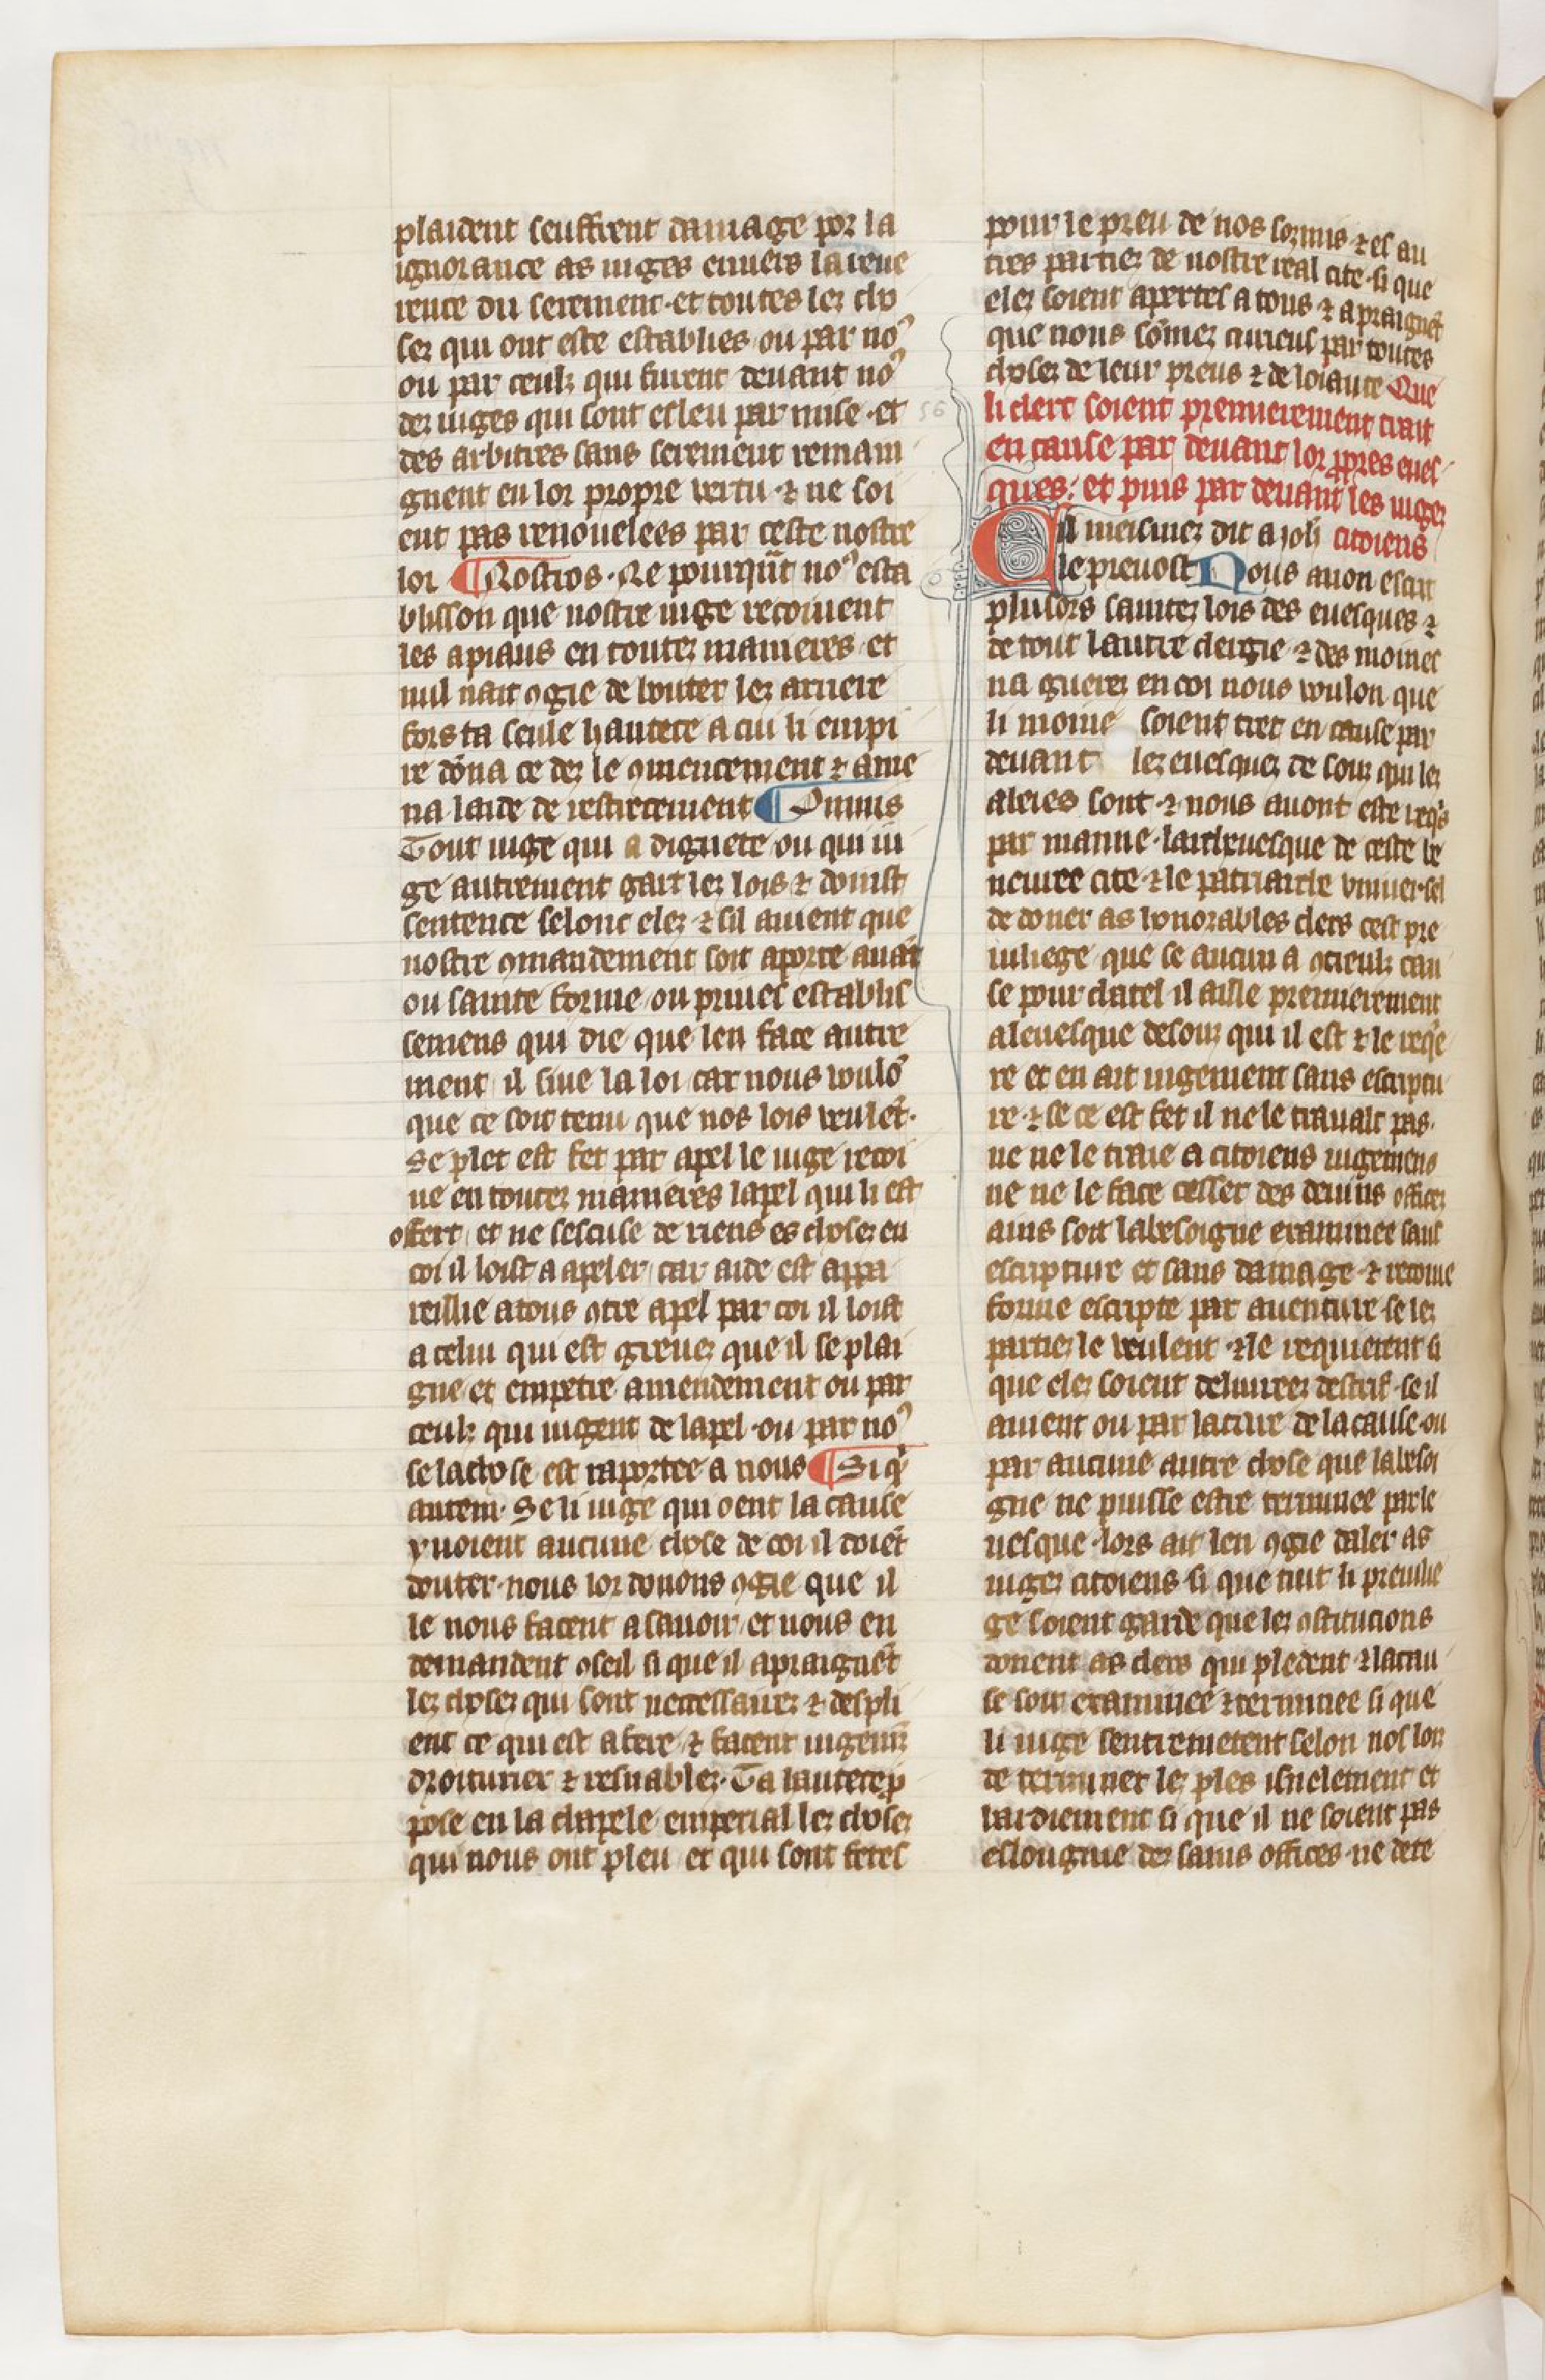 plaident seuffrent damage por la
ignorance as iuges enuers la reue
rence du serement · et toutes lez cho
sez qui ont este establies ou par noꝰ
ou par ceulz qui furent deuant noꝰ
dez iuges qui sont esleu par mise · et
des arbitres sans serement remain
gnent en lor propre vertu · ⁊ ne soi
ent pas renouelees par ceste nostre
loi ¶ Nostros · Ne pourqūt noꝰ esta
blisson que nostre iuge recoiuent
les apiaus en toutez manieres · et
nul nait ꝯgie de bouter lez arriere
fors ta seule hautece a cui li empi
re dōna ce dez le ꝯmencement ⁊ ame
na laide de restrecement ¶ Omnis
Tout iuge qui a dignete ou qui iu
ge autrement gart lez lois ⁊ doinst
sentence selonc elez · ⁊ sil auient que
nostre ꝯmandement soit aporte auāt
ou sainte forme ou priues establis
semens qui die que len face autre
ment il siue la loi car nous voulō
que ce soit tenu que nos lois veulēt ·
Se plet est fet par apel le iuge recoi
ue en toutez manieres lapel qui li est
offert · et ne sescuse de riens es chosez en
coi il loist a apeler · car aide est appa
reillie a tous ꝯtre apel par coi il loist
a celui qui est greuez que il se plai
gne et empetre amendement ou par
ceulz qui iugent de lapel · ou par noꝰ
se la chose est raportee a nous ¶ Si qͥ
autem · Se li iuge qui oent la cause
y uoient aucune chose de coi il doiēt
douter · nous lor donons ꝯgie que il
le nous facent a sauoir · et nous en
demandent ꝯseil si que il apraignēt
lez chosez qui sont necessairez ⁊ despli
ent ce qui est a fere ⁊ facent iugemz̄
droiturier ⁊ resnablez · Ta hautece ꝓ
pose en la chapele emperial lez chosez
qui nous ont pleu et qui sont fetes
pour le preu de nos sozmis ⁊ es au
tres partiez de nostre real cite · si que
elez soient apertes a tous ⁊ apraignēt
que nous sōmez curieus par toutes
chosez de leur preus ⁊ de loiaute Que
li clerc soient premierement trait
en cause par deuant lor ꝓpres eues
ques · et puis par deuant les iugez
Cil meismez dit a joh citoiens
le preuost Nous auon escrit
plusors saintez lois des euesques ⁊
de tout lautre clergie ⁊ des moines
na guerez en coi nous voulon que
li moine soient tret en cause par
deuant lez euesquez de souz qui lez
aleres sont · ⁊ nous auont este reqͥs
par manne · larcheuesque de ceste be
neuree cite · ⁊ le patriarche vniuersel
de doner as honorables clers cest pre
iuliege que se aucun a ꝯtreulz cau
se pour chatel il aille premierement
a leuesque desouz qui il est ⁊ le reqͥe
re et en ait iugement sans escriptu
re · ⁊ se ce est fet il ne le trauale pas ·
ne ne le traie a citoiens iugemens
ne ne le face cesser des deuins officez
ains soit labesoigne examinee sans
escripture et sans damage · ⁊ recoiue
forme escripte par auenture se lez
partiez le veulent · ⁊ le requierent si
que elez soient deliureez destrif · se il
auient ou par lacture de la cause · ou
par aucune autre chose que labesoi
gne ne puisse estre terminee par le
uesque · lors ait len ꝯgie daler as
iugez citoiens si que tuit li preuilie
ge soient garde que lez ꝯstitucions
donent as clers qui pledent · ⁊ la cau
se soit examinee ⁊ terminee si que
li iuge sentremetent selon nos loiz
de terminer lez ples isnelement et
hardiement si que il ne soient pas
eslongnie dez sains offices · ne dete